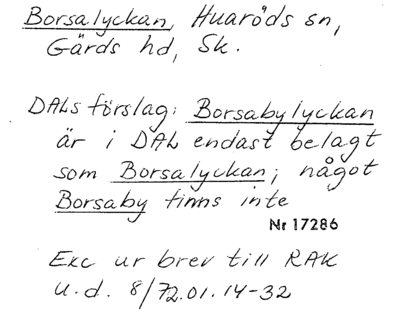 Borsalyckan, Huaröds sn,
Gärds hd, Sk.
DALs förslag: Borsabylyckan
är i DAL endast belagt
som Borsalyckan; något
Borsaby finns inte
Nr 17286
Exc ur brev till RAK
u.d. 8/72.01.14-32